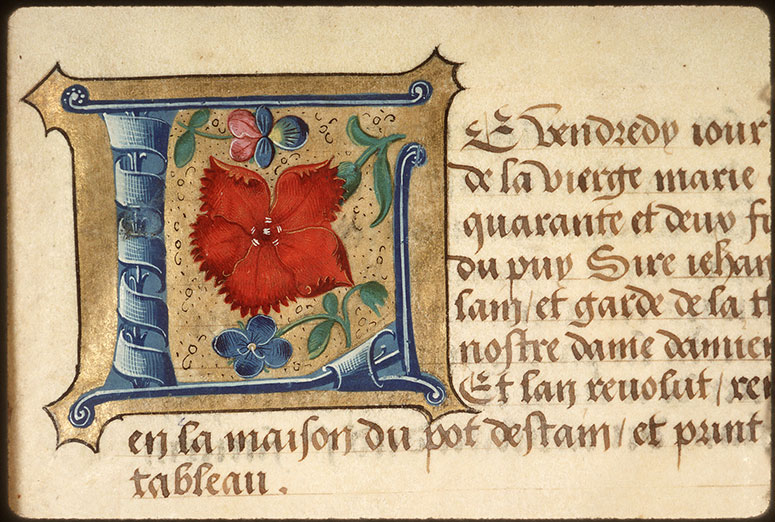 LE vendredy iour
de la vierge marie
quarante et deux
du puy Sire iehan
lam / et garde de la
nostre dame damiens
Et lan reuolut /
en la maison du pot destain / et print
tableau.